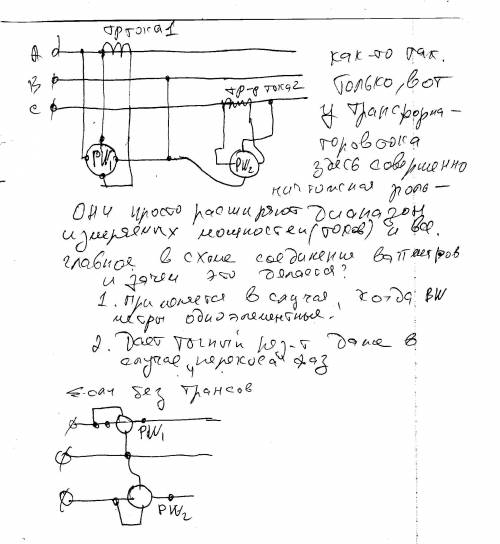 тр тока 1
А
В
С
тр-р тока 2
PW1
PW2
как-то так.
Только, вот
у трансформа-
торов тока
здесь совершенно
ничтожная роль -
Они просто расширяют диапазон
измеряемых мощностей (токов) и все.
главное в схеме соединение ваттметров
и зачем это делается?
1. Применяется в случае, когда ВW
метры одноэлементные.
2. Дает точный рез-т даже в
случае "перекоса" фаз
Если без трансов
PW1
PW2